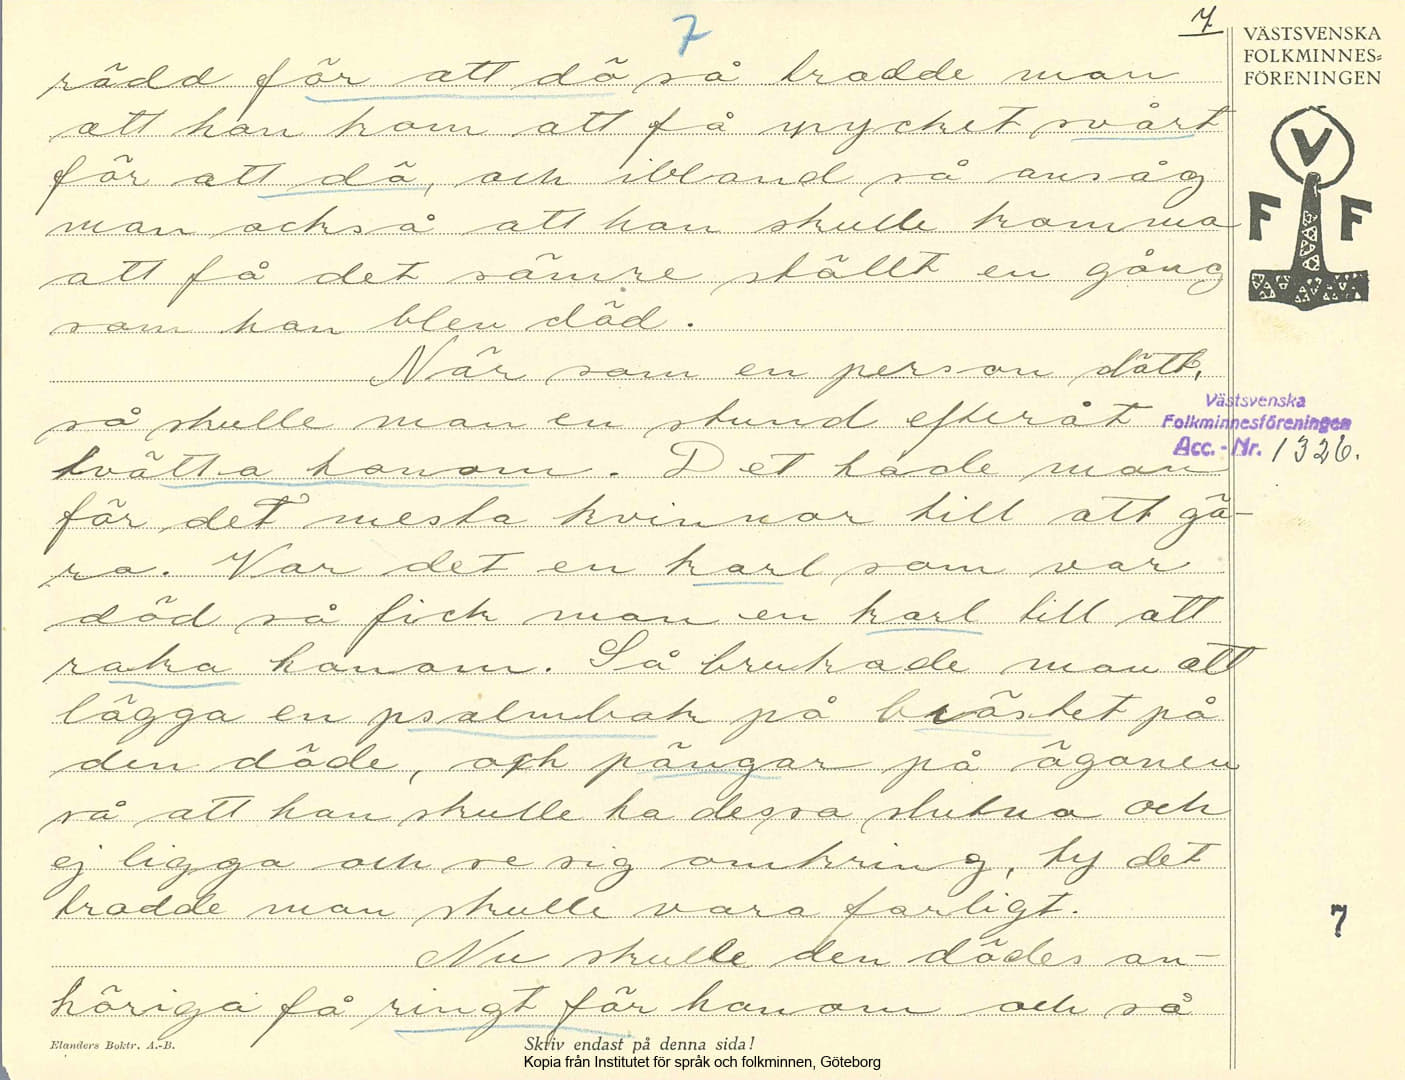 7
7
VÄSTSVENSKA
FOLKMINNES=
FÖRENINGEN
V
F F
rädd för att dö så trodde man
att han kom att få mycket svårt
för att dö, och ibland så ansåg
man också att han skulle komma
att få det sämre ställt en gång
som han blev död.
När som en person dött,
så skulle man en stund efteråt
tvätta honom. Det hade man
för det mesta kvinnor till att gö-
ra. Var det en karl som var
död så fick man en karl till att
raka honom. Så brukade man att
lägga en psalmbok på bröstet på
den döde, och pängar på ögonen
så att han skulle ha dessa slutna och
ej ligga och se sig omkring, ty det
trodde man skulle vara farligt.
Nu skulle den dödes an-
höriga få ringt för honom och så
Västsvenska
Folkminnesföreningen
Acc. - Nr. 1326.
7
Elanders Boktr. A.-B.
Skriv endast på denna sida!
Kopia från Institutet för språk och folkminnen, Göteborg